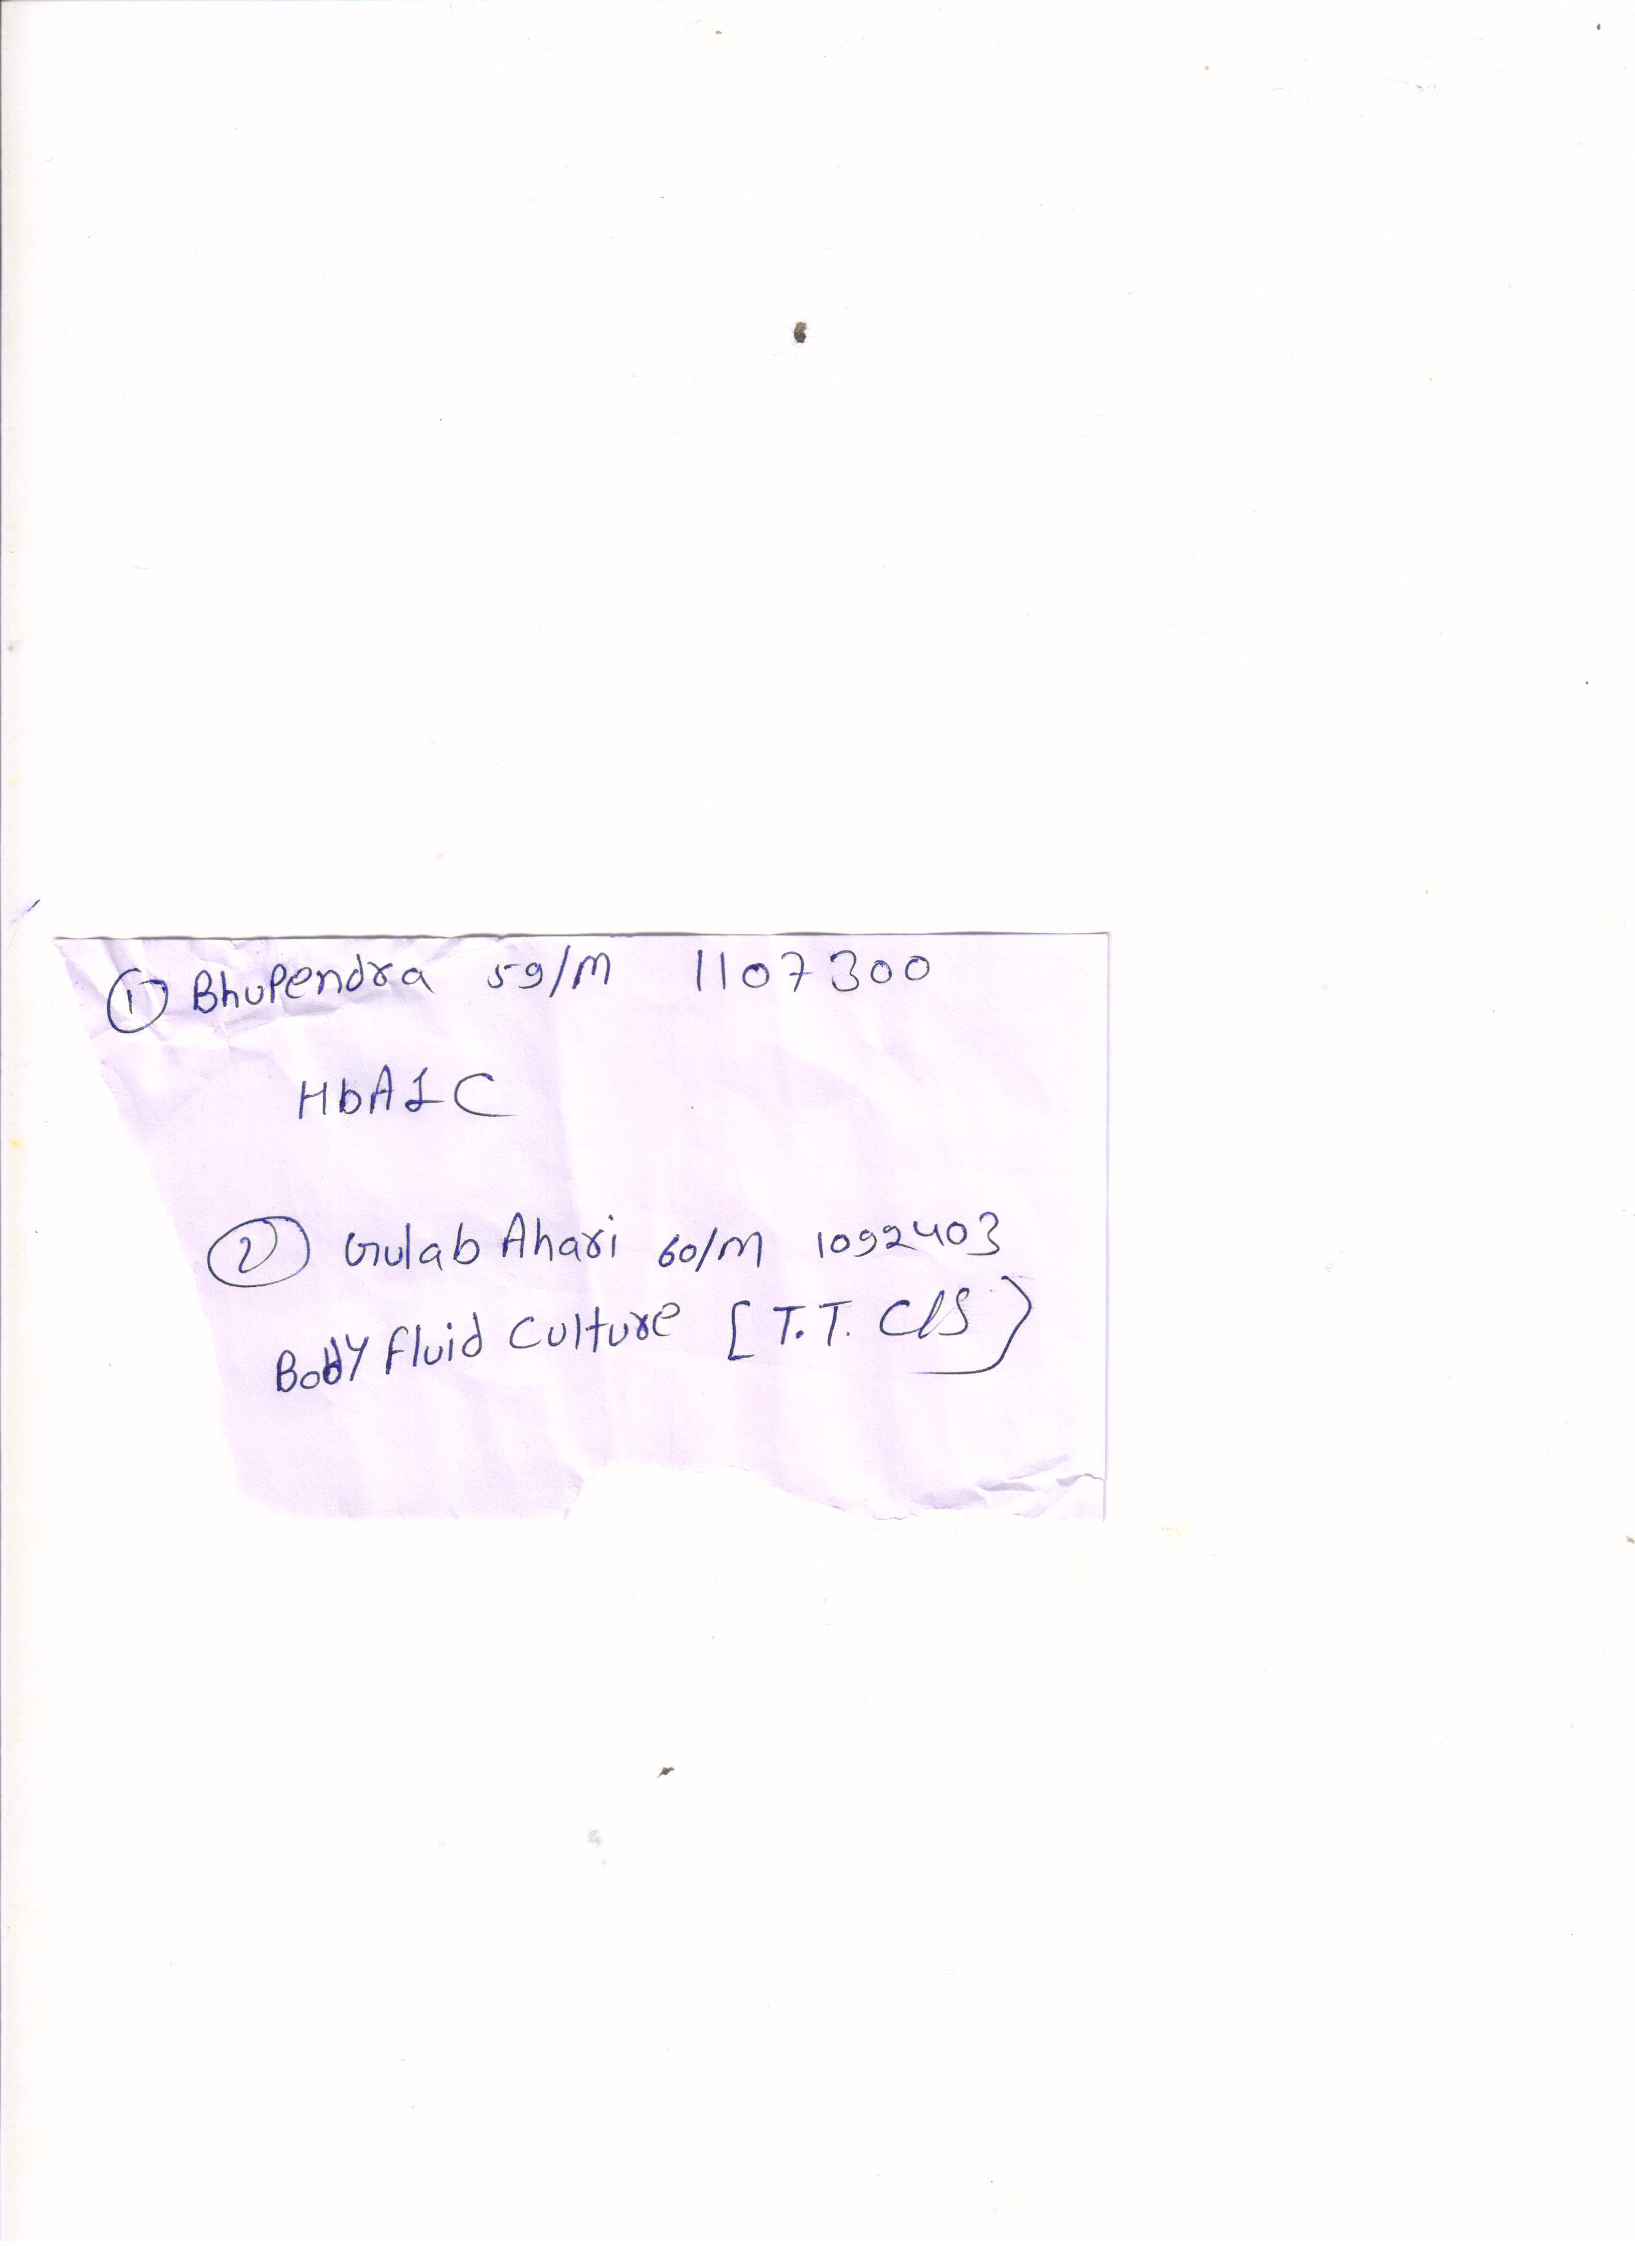 ① Bhupendra 59/M 1107300
HbA1C
② Gulab Ahari 60/M 1092403
Body fluid Culture [T.T. C/S)